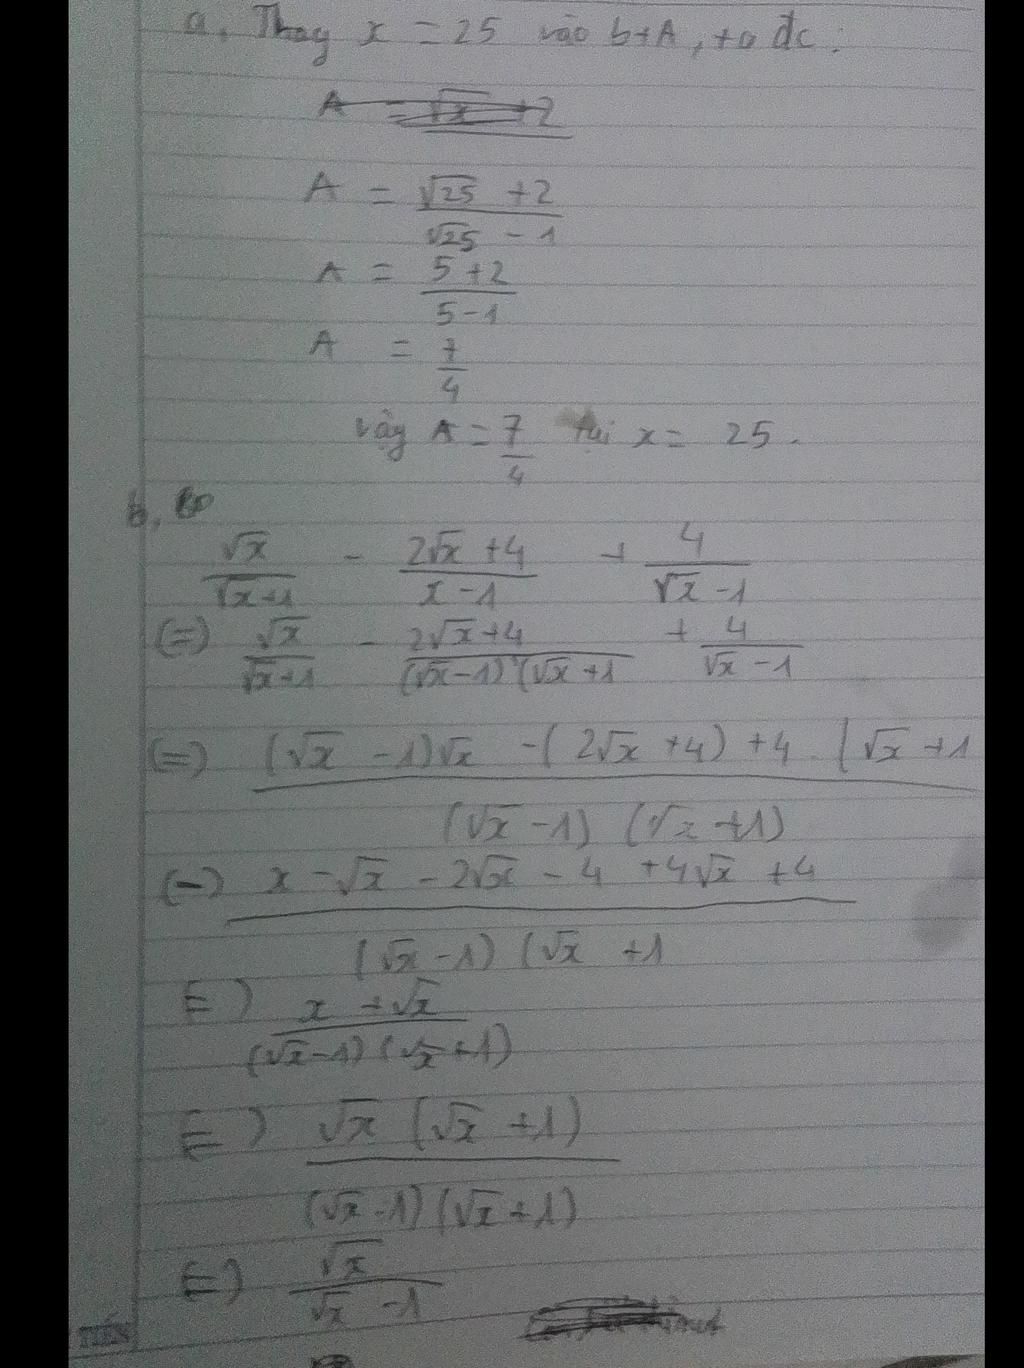 a, Thay x = 25 vào btA, ta đc:
A = √x + 2
A = (√25 + 2)/(√25 - 1)
A = (5+2)/(5-1)
A = 7/4
vậy A = 7/4 tại x = 25.
b,
√x/(√x+1) - (2√x+4)/(x-1) + 4/(√x-1)
(=) √x/(√x+1) - (2√x+4)/((√x-1)(√x+1) + 4/(√x-1)
(=) (√x-1)√x - (2√x+4) + 4.(√x+1
(√x-1)(√x+1)
(=) x - √x - 2√x - 4 + 4√x + 4
(√x-1)(√x+1
(=) (x+√x)/((√x-1)(√x+1))
(=) √x(√x+1)
(√x-1)(√x+1)
(=) √x/(√x-1)